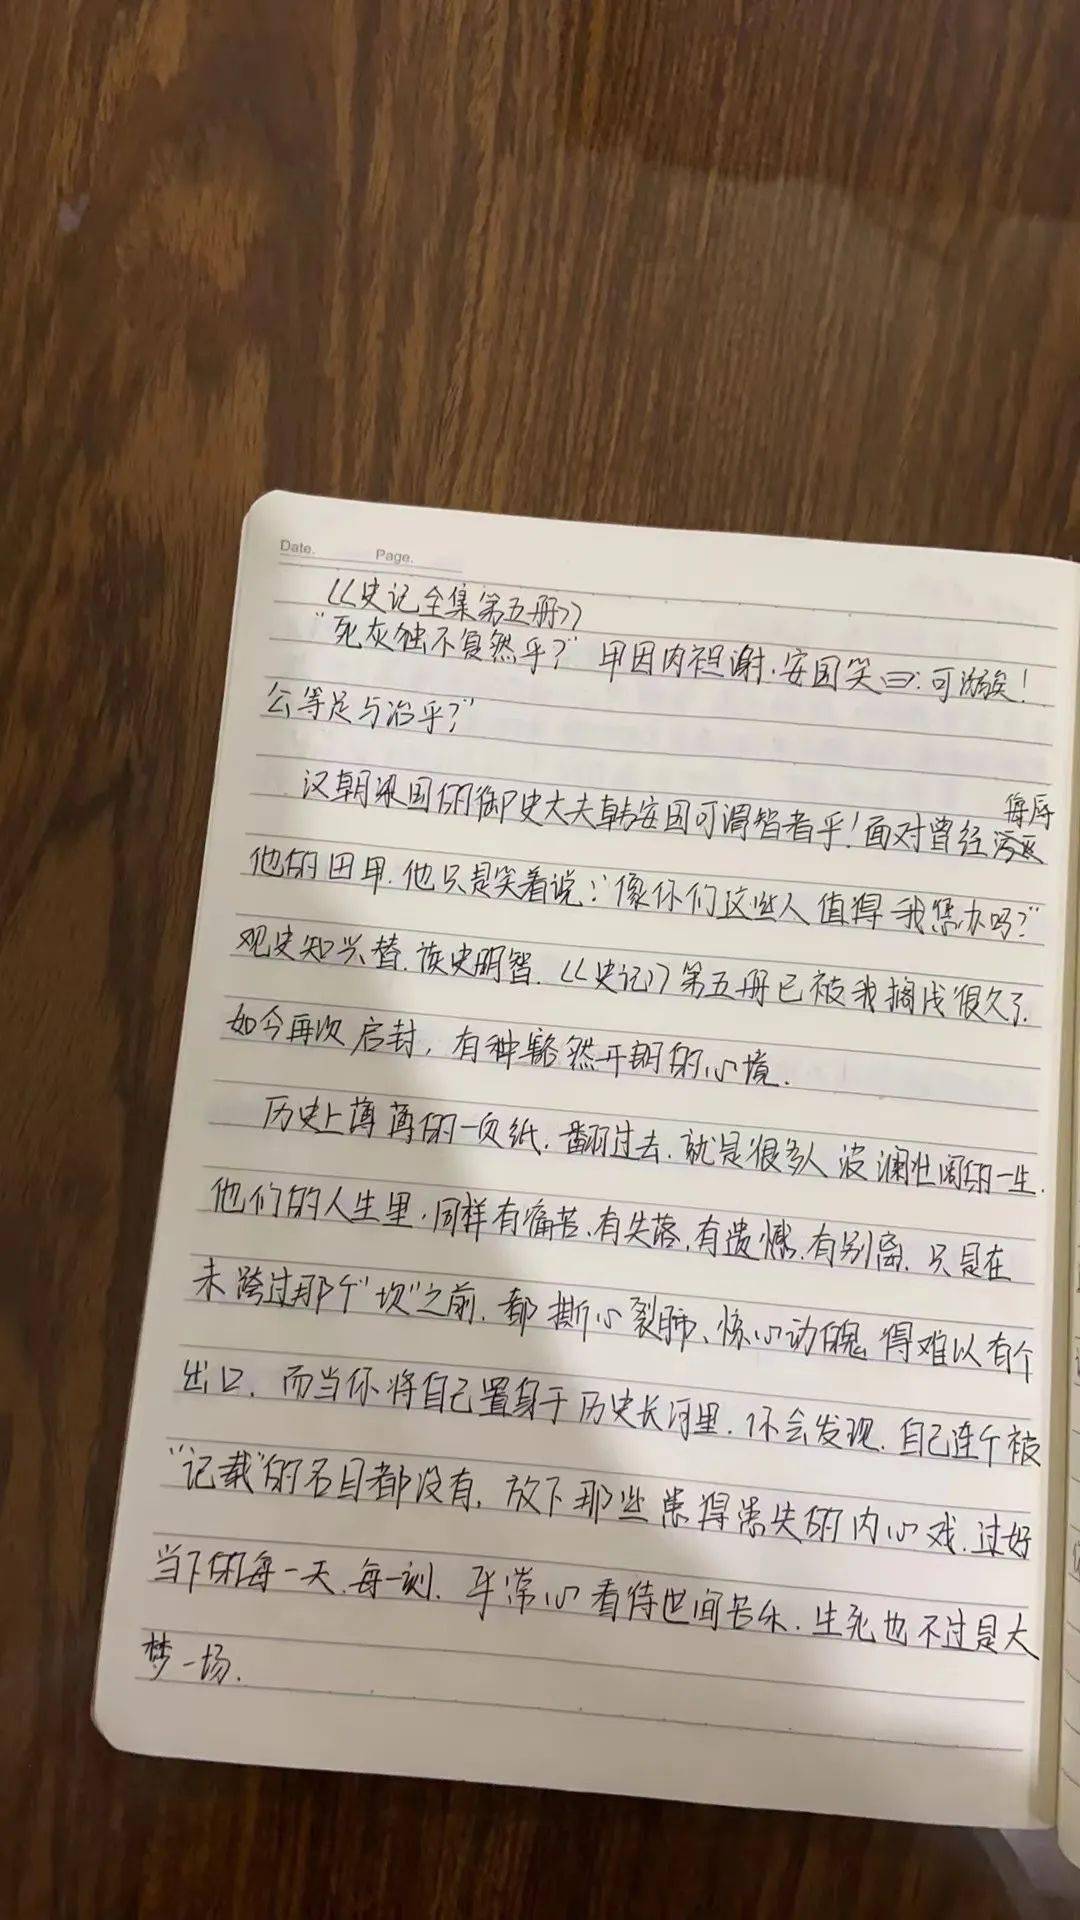 Date. Page.
《史记全集第五册》
“死灰独不复然乎？”甲因肉袒谢.安国笑曰:可溺矣！
公等足与治乎？”
汉朝梁国的御史大夫韩安国可谓智者乎！面对曾经
侮辱
他的田甲.他只是笑着说：“像你们这些人值得我惩办吗？”
观史知兴替.读史明智.《史记》第五册已被我搁浅很久了.
如今再次启封，有种豁然开朗的心境.
历史上薄薄的一页纸.翻过去.就是很多人波澜壮阔的一生.
他们的人生里.同样有痛苦.有失落.有遗憾.有别离.只是在
未跨过那个“坎”之前.都撕心裂肺、惊心动魄得难以有个
出口.而当你将自己置身于历史长河里.你会发现.自己连个被
“记载”的名目都没有.放下那些患得患失的内心戏.过好
当下的每一天.每一刻.平常心看待世间苦乐.生死也不过是大
梦一场.